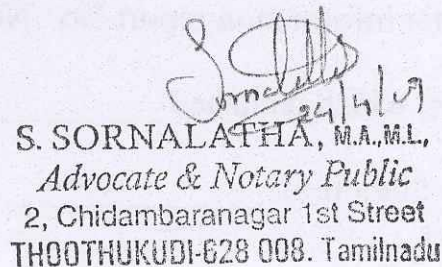 Sornalatha
24/4/09
S. SORNALATHA, M.A.,M.L.,
Advocate & Notary Public
2, Chidambaranagar 1st Street
THOOTHUKUDI-628 008. Tamilnadu